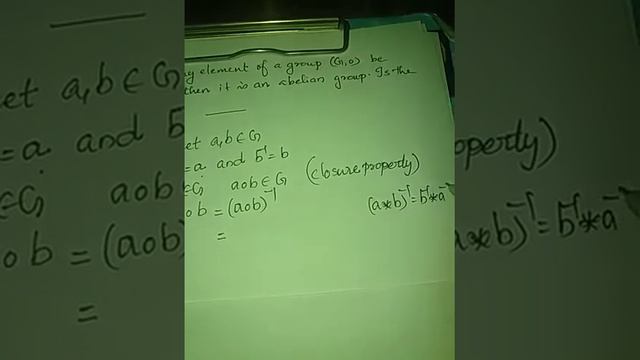 y element of a group (G,o) be
then it is an abelian group. Is the
et a,b∈G
=a and b⁻¹=b
∈G aob∈G (closure property)
ob = (aob)⁻¹ (a*b)⁻¹=b⁻¹*a⁻
=